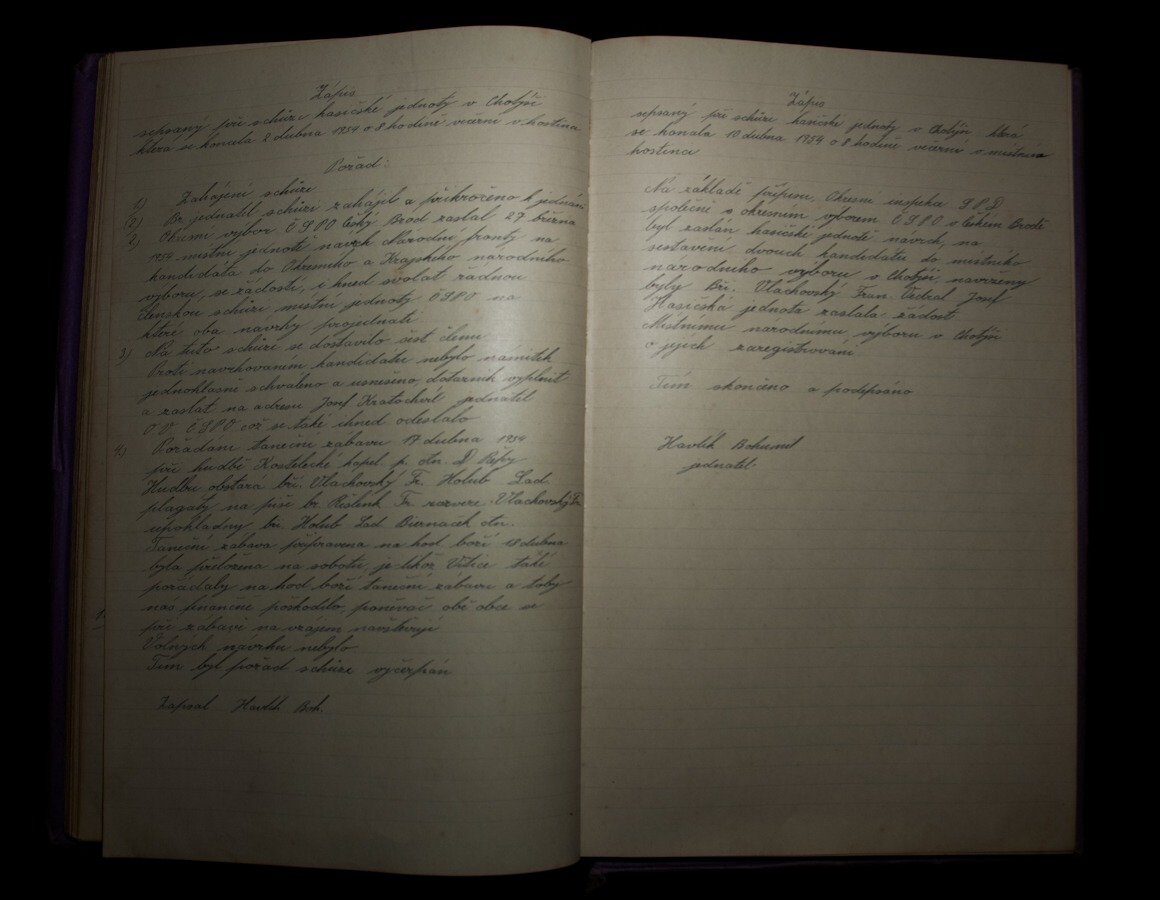 Zápis
sepsaný při schůzi hasičské jednoty v Chotýši
která se konala 2 dubna 1954 o 8 hodině večerní v hostinci
Pořad:
1) Zahájení schůze
(2) Br. jednatel schůzi zahájil a přikročeno k jednání
2) Okresní výbor ČSPO Český Brod zaslal 27 března
1954 místní jednotě návrh Národní fronty na
kandidáta do Okresního a Krajského národního
výboru, se žádostí, i hned svolat řádnou
členskou schůzi místní jednoty ČSPO na
které oba návrhy projednati
3) Na tuto schůzi se dostavilo šest členů
Proti navrhovaním kandidátů nebylo námitek
jednohlasně schváleno a usneseno, dotazník vyplnit
a zaslat na adresu Josef Kratochvíl jednatel
O.V. ČSPO což se také ihned odeslalo
4) Pořádání taneční zábavu 17 dubna 1954
při hudbě Kostelecké kapel. p.
Hudbu obstará bří. Vlachovský Fr. Holub Lad.
plagáty na píše br. Fr. rozveze Vlachovský Fr.
upokladny br. Holub Lad. Biernacek
Taneční zábava připravena na hod boží 18 dubna
byla přeložena na sobotu, jelikož Vitice také
pořádaly na hod boží taneční zábavu a toby
nás finančne poškodilo, ponivač obě obce se
při zábavě na vzájem navštěvují
Volných návrhu nebylo
Tím byl pořad schůze vyčerpán
Zapsal Havlík Boh.
Zápis
sepsaný při schůzi hasičské jednoty v Chotýši která
se konala 10 dubna 1954 o 8 hodině večerní v místním
hostinci
Na základě přípisu, Okresní inspekce
společně s okresním výborem ČSPO v Českém Brodě
byl zaslán hasičské jednotě návrh, na
sestavění dvouch kandidátu do místního
národního výboru v Chotýši, navrženy
byly Bři. Vlachovský Fran. Josef
Hasičská jednota zaslala žádost
Místnímu narodnímu výboru v Chotýši
o jejich zaregistrování
Tím skončeno a podepsáno
Havlík Bohumil
jednatel.